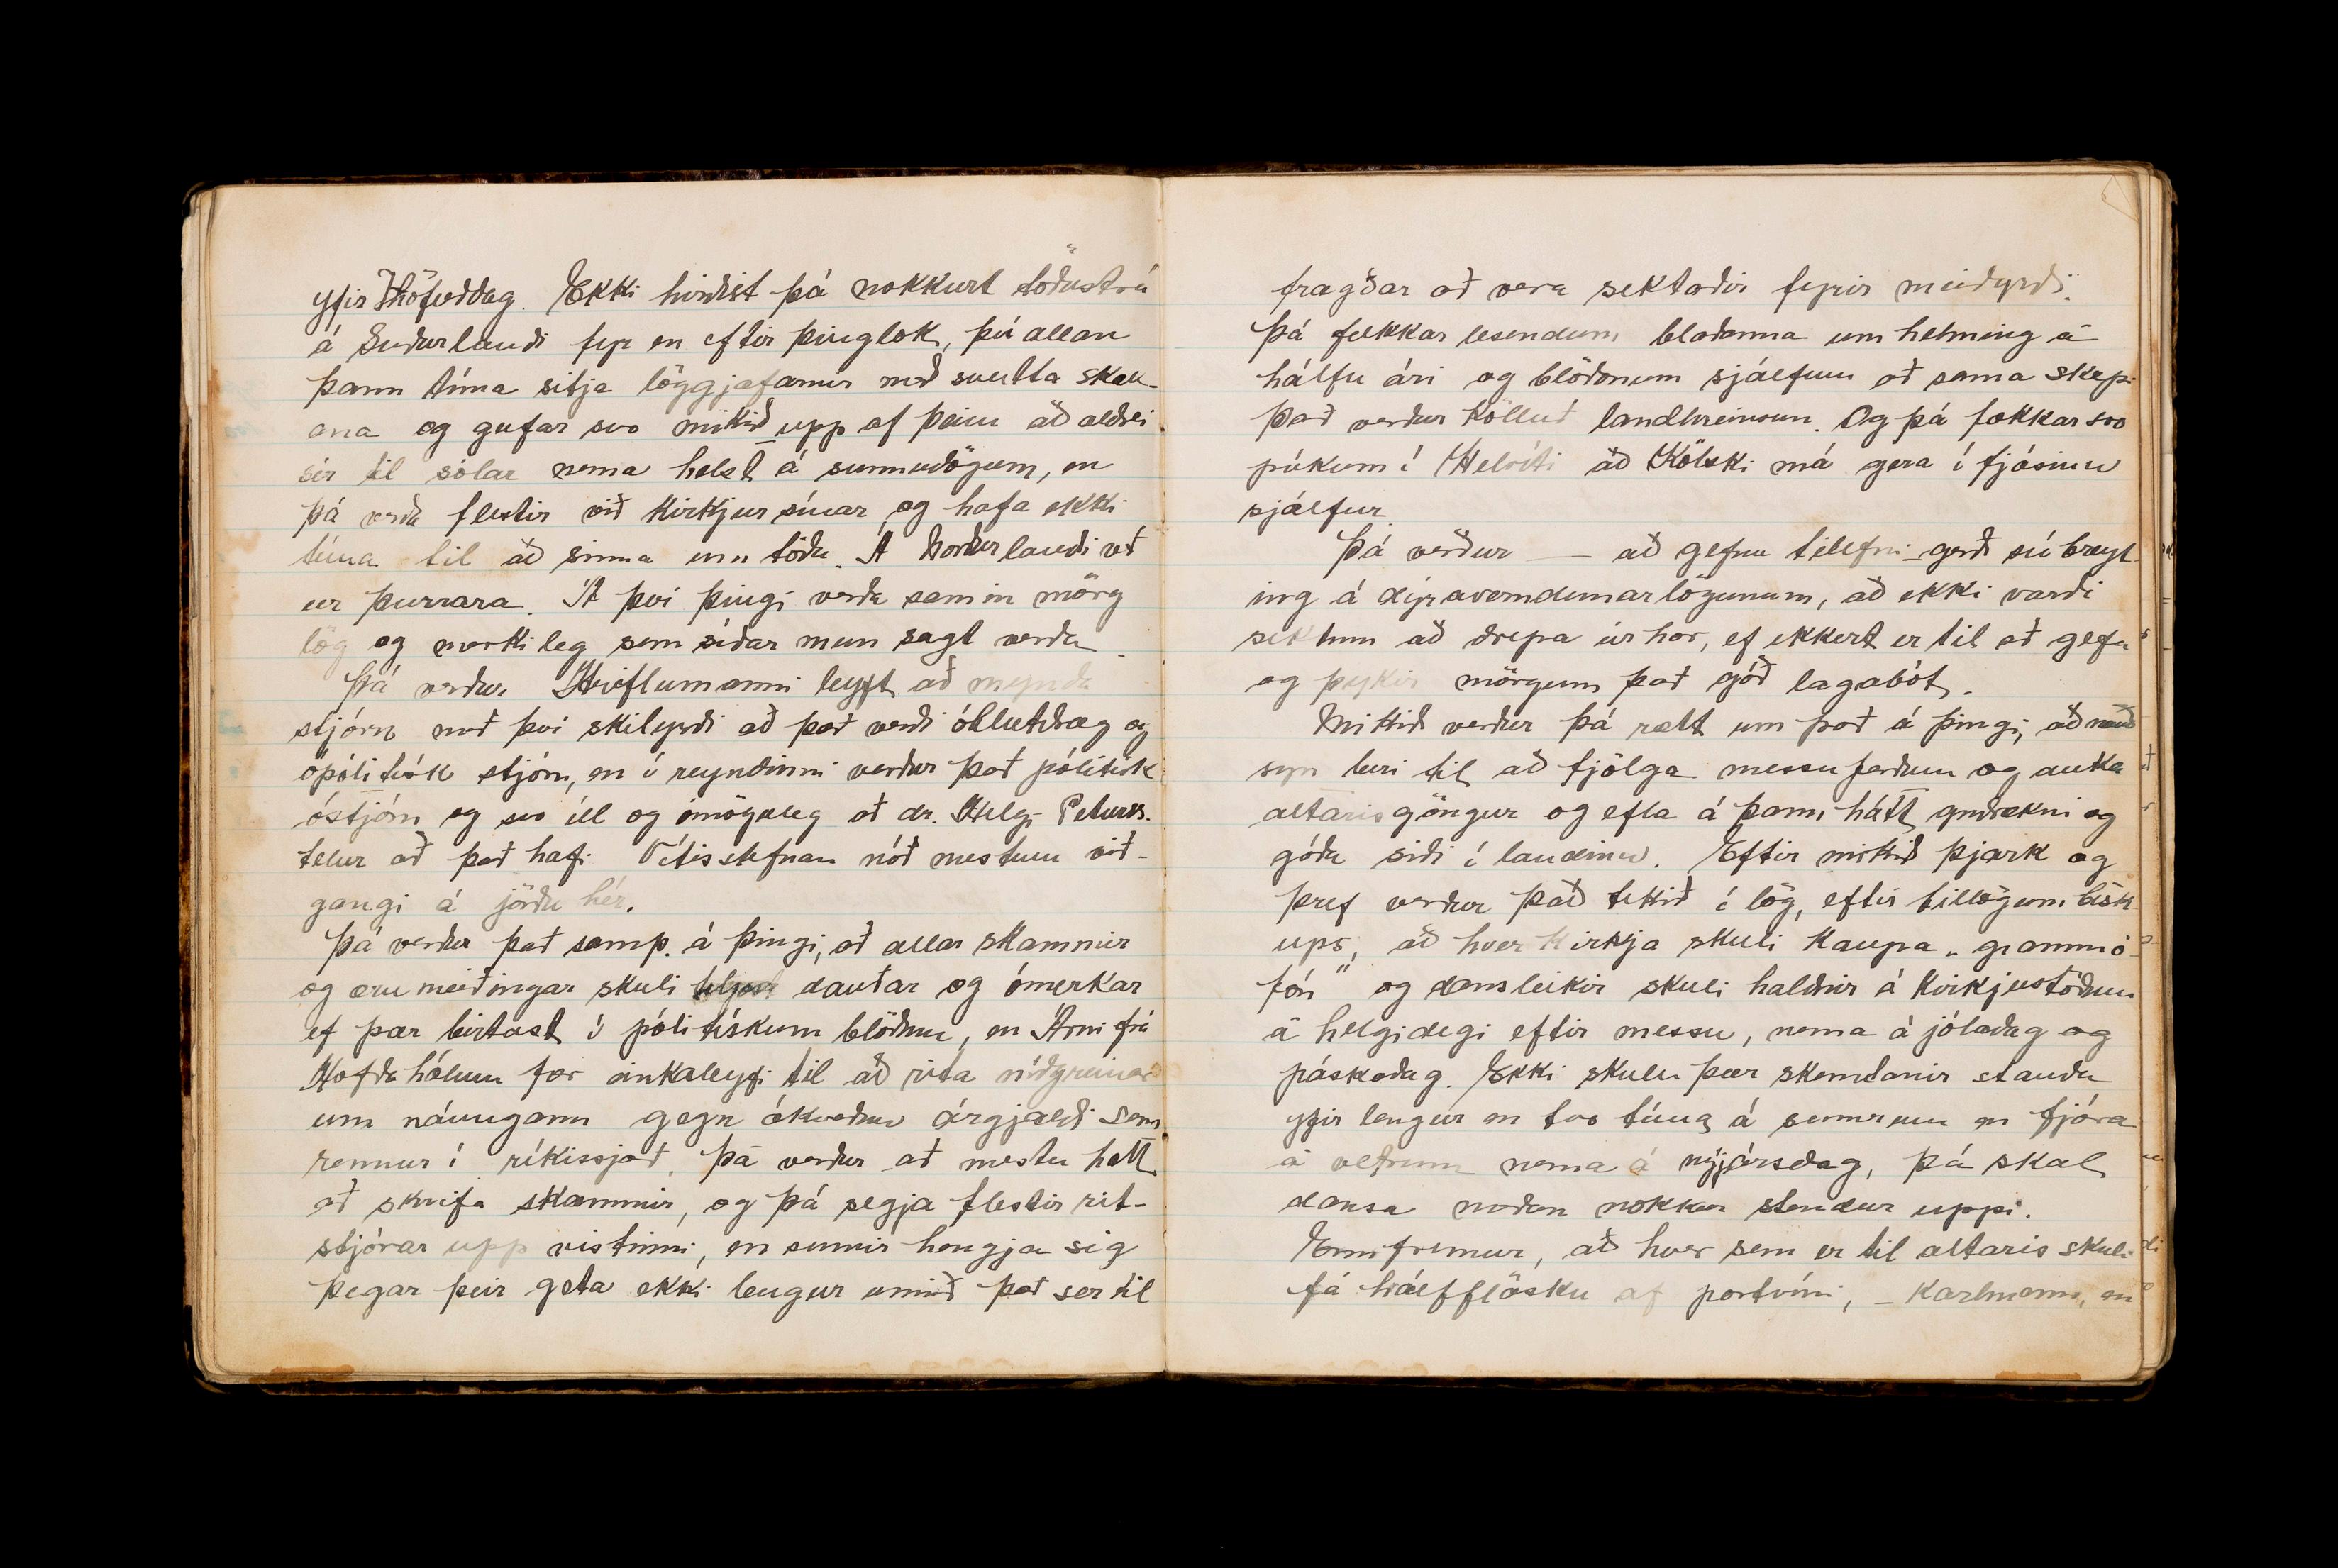 yfir Höfuðdag. Ekki hirðist þá nokkurt töðustrá
á Suðurlandi fyr en eftir þinglok, því allan
þann tíma sitja löggjafarnir með sveitta skall-
ana og gufar svo mikið upp af þeim að aldrei
sér til sólar nema helst á sunnudögum, en
þá verða flestir við kirkjur sínar, og hafa ekki
tíma til að sinna um töðu. Á Norðurlandi verð
ur þurrara. Á því þingi verða samin mörg
lög og merkileg sem síðar mun sagt verða.
Þá verður Hriflumanni leyft að mynda
stjórn með því skilyrði að það verði óhlutdræg og
ópólitísk stjórn, en í reyndinni verður það pólitísk
óstjórn og svo ill og ómöguleg að dr. Helgi Péturss.
telur að það hafi Vítisstefnan náð mestum við-
gangi á jörðu hér.
Þá verður það samþ. á þingi, að allar skammir
og ærumeiðingar skuli teljast dauðar og ómerkar
ef þær birtast í pólitískum blöðum, en Árni frá
Höfðahólum fær einkaleyfi til að rita níðgreinar
um náungann gegn ákveðnu árgjaldi sem
rennur í ríkissjóð. Þá verður að mestu hætt
að skrifa skammir, og þá segja flestir rit-
stjórar upp vistinni, en sumir hengja sig
þegar þeir geta ekki lengur unnið það sér til
frægðar að vera sektaðir fyrir meiðyrði.
Þá fækkar lesendum blaðanna um helming á
hálfu ári og blöðunum sjálfum að sama skapi
Það verður kölluð landhreinsun. Og þá fækkar svo
púkum í Helvíti að Kölski má gera í fjósinu
sjálfur.
Þá verður — að gefnu tilefni – gerð sú breyt-
ing á dýraverndunarlögunum, að ekki varði
sektum að drepa úr hor, ef ekkert er til að gefa
og þykir mörgum það góð lagabót.
Mikið verður þá rætt um það á þingi, að nauð
syn beri til að fjölga messuferðum og auka
altarisgöngur og efla á þann hátt guðrækni og
góða siði í landinu. Eftir mikið þjark og
þref verður það tekið í lög, eftir tillögum bisk
ups, að hver kirkja skuli kaupa „grammó-
fón" og dansleikir skuli haldnir á kirkjustöðum
á helgidegi eftir messu, nema á jóladag og
páskadag. Ekki skulu þær skemtanir standa
yfir lengur en tvo tíma á sumrum en fjóra
á vetrum nema á nýjársdag, þá skal
dansa meðan nokkur stendur uppi.
Ennfremur, að hver sem er til altaris skuli
fá hálfflösku af portvíni, – karlmenn, en